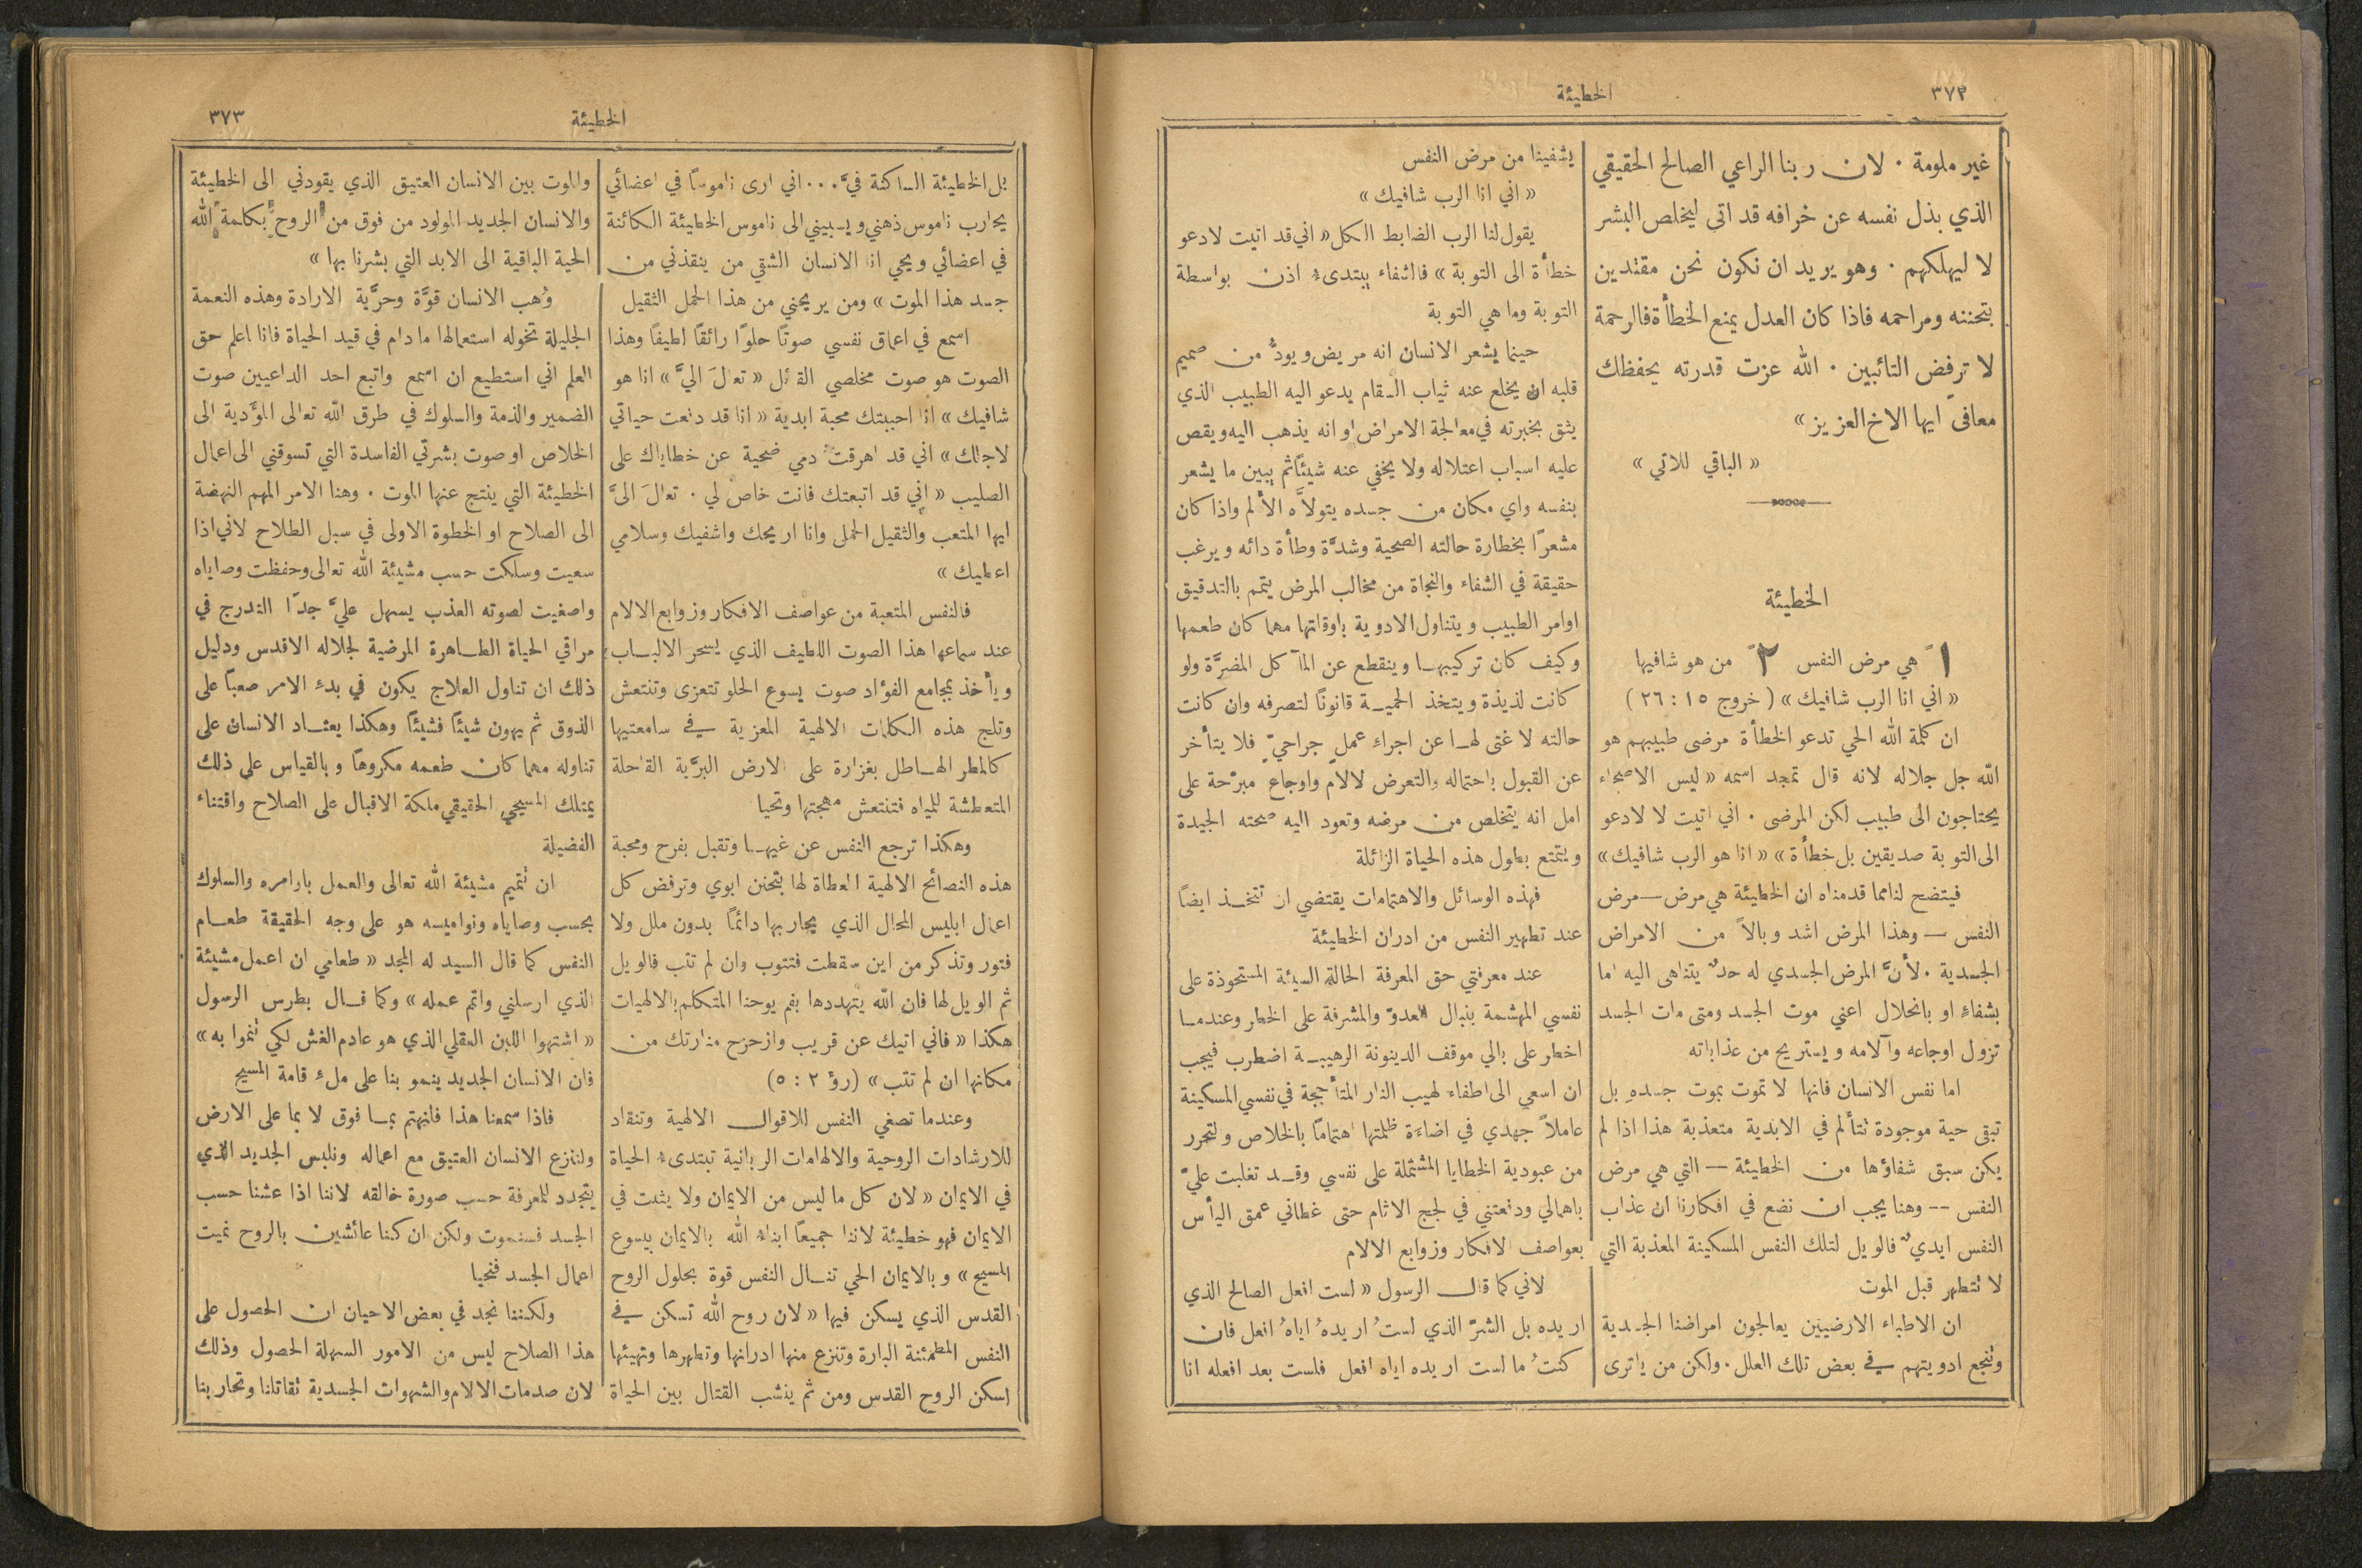 ٣٧٢
الخطيئة
غير ملومة . لان ربنا الراعي الصالح الحقيقي
الذي بذل نفسه عن خرافه قد اتى ليخلص البشر
لا ليهلكهم . وهو يريد ان نكون نحن مقتدين
بتحننه ومراحمه فاذا كان العدل يمنع الخطأة فالرحمة
لا ترفض التائبين . الله عزت قدرته يحفظك
معافىً ايها الاخ العزيز»
« الباقي للاتي »
الخطيئة
١ً هي مرض النفس ٢ً من هو شافيها
« اني انا الرب شافيك » ( خروج ١٥ : ٢٦ )
ان كلمة الله الحي تدعو الخطأة مرضى طبيبهم هو
الله جل جلاله لانه قال تمجد اسمه « ليس الاصحاء
يحتاجون الى طبيب لكن المرضى . اني اتيت لا لادعو
الى التوبة صديقين بل خطأة » « انا هو الرب شافيك »
فيتضح لنا مما قدمناه ان الخطيئة هي مرض — مرض
النفس — وهذا المرض اشد وبالاً من الامراض
الجسدية . لأنَّ المرض الجسدي له حدٌ يتناهى اليه اما
بشفاءٍ او بانحلال اعني موت الجسد ومتى مات الجسد
تزول اوجاعه وآلامه ويستريح من عذاباته
اما نفس الانسان فانها لا تموت بموت جسدهِ بل
تبقى حية موجودة تتألم في الابدية متعذبة هذا اذا لم
يكن سبق شفاؤها من الخطيئة — التي هي مرض
النفس -- وهنا يجب ان نضع في افكارنا ان عذاب
النفس ابديٌ فالويل لتلك النفس المسكينة المعذبة التي
لا تتطهر قبل الموت
ان الاطباء الارضيين يعالجون امراضنا الجسدية
وتنجع ادويتهم في بعض تلك العلل . ولكن من ياترى
يشفينا من مرض النفس
« اني انا الرب شافيك »
يقول لنا الرب الضابط الكل « اني قد اتيت لادعو
خطأة الى التوبة » فالشفاء يبتدىء اذن بواسطة
التوبة وما هي التوبة
حينما يشعر الانسان انه مريض ويودُّ من صميم
قلبه ان يخلع عنه ثياب السقام يدعو اليه الطبيب الذي
يثق بخبرته في معالجة الامراض او انه يذهب اليه ويقص
عليه اسباب اعتلاله ولا يخفي عنه شيئاً ثم يبين ما يشعر
بنفسه واي مكان من جسده يتولاَّه الألم واذا كان
مشعرًا بخطارة حالته الصحية وشدَّة وطأة دائه ويرغب
حقيقة في الشفاء والنجاة من مخالب المرض يتمم بالتدقيق
اوامر الطبيب ويتناول الادوية باوقاتها مهما كان طعمها
وكيف كان تركيبها وينقطع عن المآكل المضرَّة ولو
كانت لذيذة ويتخذ الحمية قانونًا لتصرفه وان كانت
حالته لا غنى لها عن اجراء عملٍ جراحيّ فلا يتأخر
عن القبول باحتماله والتعرض لالام واوجاع مبرّحة على
امل انه يتخلص من مرضه وتعود اليه صحته الجيدة
ويتمتع بطول هذه الحياة الزائلة
فهذه الوسائل والاهتمامات يقتضي ان تتخذ ايضًا
عند تطهير النفس من ادران الخطيئة
عند معرفتي حق المعرفة الحالة السيئة المستحوذة على
نفسي المهشمة بنبال العدوّ والمشرفة على الخطر وعندما
اخطر على بالي موقف الدينونة الرهيبة اضطرب فيجب
ان اسعى الى اطفاء لهيب النار المتأججة في نفسي المسكينة
عاملاً جهدي في اضاءة ظلمتها اهتمامًا بالخلاص ولتحرر
من عبودية الخطايا المشتملة على نفسي وقد تغلبت عليّ
باهمالي ودفعتني في لجج الاثام حتى غطاني عمق اليأس
بعواصف الافكار وزوابع الالام
لاني كما قال الرسول « لست افعل الصالح الذي
اريده بل الشرّ الذي لستُ اريدهُ اياهُ افعل فان
كنتُ ما لست اريده اياه افعل فلست بعد افعله انا
الخطيئة
٣٧٣
بل الخطيئة الساكنة فيَّ ... اني ارى ناموسًا في اعضائي
يحارب ناموس ذهني ويسبيني الى ناموس الخطيئة الكائنة
في اعضائي ويحي انا الانسان الشقي من ينقذني من
جسد هذا الموت » ومن يريحني من هذا الحمل الثقيل
اسمع في اعماق نفسي صوتًا حلوًا رائقًا لطيفًا وهذا
الصوت هو صوت مخلصي القائل « تعالَ اليَّ » انا هو
شافيك » انا احببتك محبة ابدية « انا قد دفعت حياتي
لاجلك » اني قد اهرقتُ دمي ضحية عن خطاياك على
الصليب « اني قد اتبعتك فانت خاصٌ لي . تعالَ اليَّ
ايها المتعب والثقيل الحمل وانا اريحك واشفيك وسلامي
اعطيك »
فالنفس المتعبة من عواصف الافكار وزوابع الالام
عند سماعها هذا الصوت اللطيف الذي يسحر الالباب
ويأخذ بمجامع الفؤاد صوت يسوع الحلو تتعزى وتنتعش
وتلج هذه الكلمات الالهية المعزية في سامعتيها
كالمطر الهاطل بغزارة على الارض البرَّية القاحلة
المتعطشة للمياه فتنتعش مهجتها وتحيا
وهكذا ترجع النفس عن غيها وتقبل بفرح ومحبة
هذه النصائح الالهية المعطاة لها بتحنن ابوي وترفض كل
اعمال ابليس المحال الذي يحاربها دائمًا بدون ملل ولا
فتور وتذكر من اين سقطت فتتوب وان لم تتب فالويل
ثم الويل لها فان الله يتهددها بفم يوحنا المتكلم بالالهيات
هكذا « فاني اتيك عن قريب وازحزح منارتك من
مكانها ان لم تتب » (رؤ ٢ : ٥)
وعندما تصغي النفس للاقوال الالهية وتنقاد
للارشادات الروحية والالهامات الربانية تبتدىء الحياة
في الايمان « لان كل ما ليس من الايمان ولا يثبت في
الايمان فهو خطيئة لاننا جميعًا ابناء الله بالايمان بيسوع
المسيح » وبالايمان الحي تنال النفس قوة بحلول الروح
القدس الذي يسكن فيها « لان روح الله تسكن في
النفس المطمئنة البارة وتنزع منها ادرانها وتطهرها وتهيئها
لسكن الروح القدس ومن ثم ينشب القتال بين الحياة
والموت بين الانسان العتيق الذي يقودني الى الخطيئة
والانسان الجديد المولود من فوق من الروح بكلمة الله
الحية الباقية الى الابد التي بشرنا بها »
وُهب الانسان قوَّة وحرَّية الارادة وهذه النعمة
الجليلة تخوله استعمالها ما دام في قيد الحياة فانا اعلم حق
العلم اني استطيع ان اسمع واتبع احد الداعيين صوت
الضمير والذمة والسلوك في طرق الله تعالى المؤدية الى
الخلاص او صوت بشرتي الفاسدة التي تسوقني الى اعمال
الخطيئة التي ينتج عنها الموت . وهنا الامر المهم النهضة
الى الصلاح او الخطوة الاولى في سبل الطلاح لاني اذا
سعيت وسلكت حسب مشيئة الله تعالى وحفظت وصاياه
واصغيت لصوته العذب يسهل عليَّ جدًا التدرج في
مراقي الحياة الطاهرة المرضية لجلاله الاقدس ودليل
ذلك ان تناول العلاج يكون في بدء الامر صعبًا على
الذوق ثم يهون شيئًا فشيئًا وهكذا يعتاد الانسان على
تناوله مهما كان طعمه مكروهًا وبالقياس على ذلك
يمتلك المسيحي الحقيقي ملكة الاقبال على الصلاح واقتناء
الفضيلة
ان تتميم مشيئة الله تعالى والعمل باوامره والسلوك
بحسب وصاياه ونواميسه هو على وجه الحقيقة طعام
النفس كما قال السيد له المجد « طعامي ان اعمل مشيئة
الذي ارسلني واتم عمله » وكما قال بطرس الرسول
« اشتهوا اللبن العقلي الذي هو عادم الغش لكي تنموا به »
فان الانسان الجديد ينمو بنا على ملءِ قامة المسيح
فاذا سمعنا هذا فلنهتم بما فوق لا بما على الارض
ولننزع الانسان العتيق مع اعماله ونلبس الجديد الذي
يتجدد للمعرفة حسب صورة خالقه لاننا اذا عشنا حسب
الجسد فسنموت ولكن ان كنا عائشين بالروح نميت
اعمال الجسد فنحيا
ولكننا نجد في بعض الاحيان ان الحصول على
هذا الصلاح ليس من الامور السهلة الحصول وذلك
لان صدمات الالام والشهوات الجسدية تقاتلنا وتحاربنا